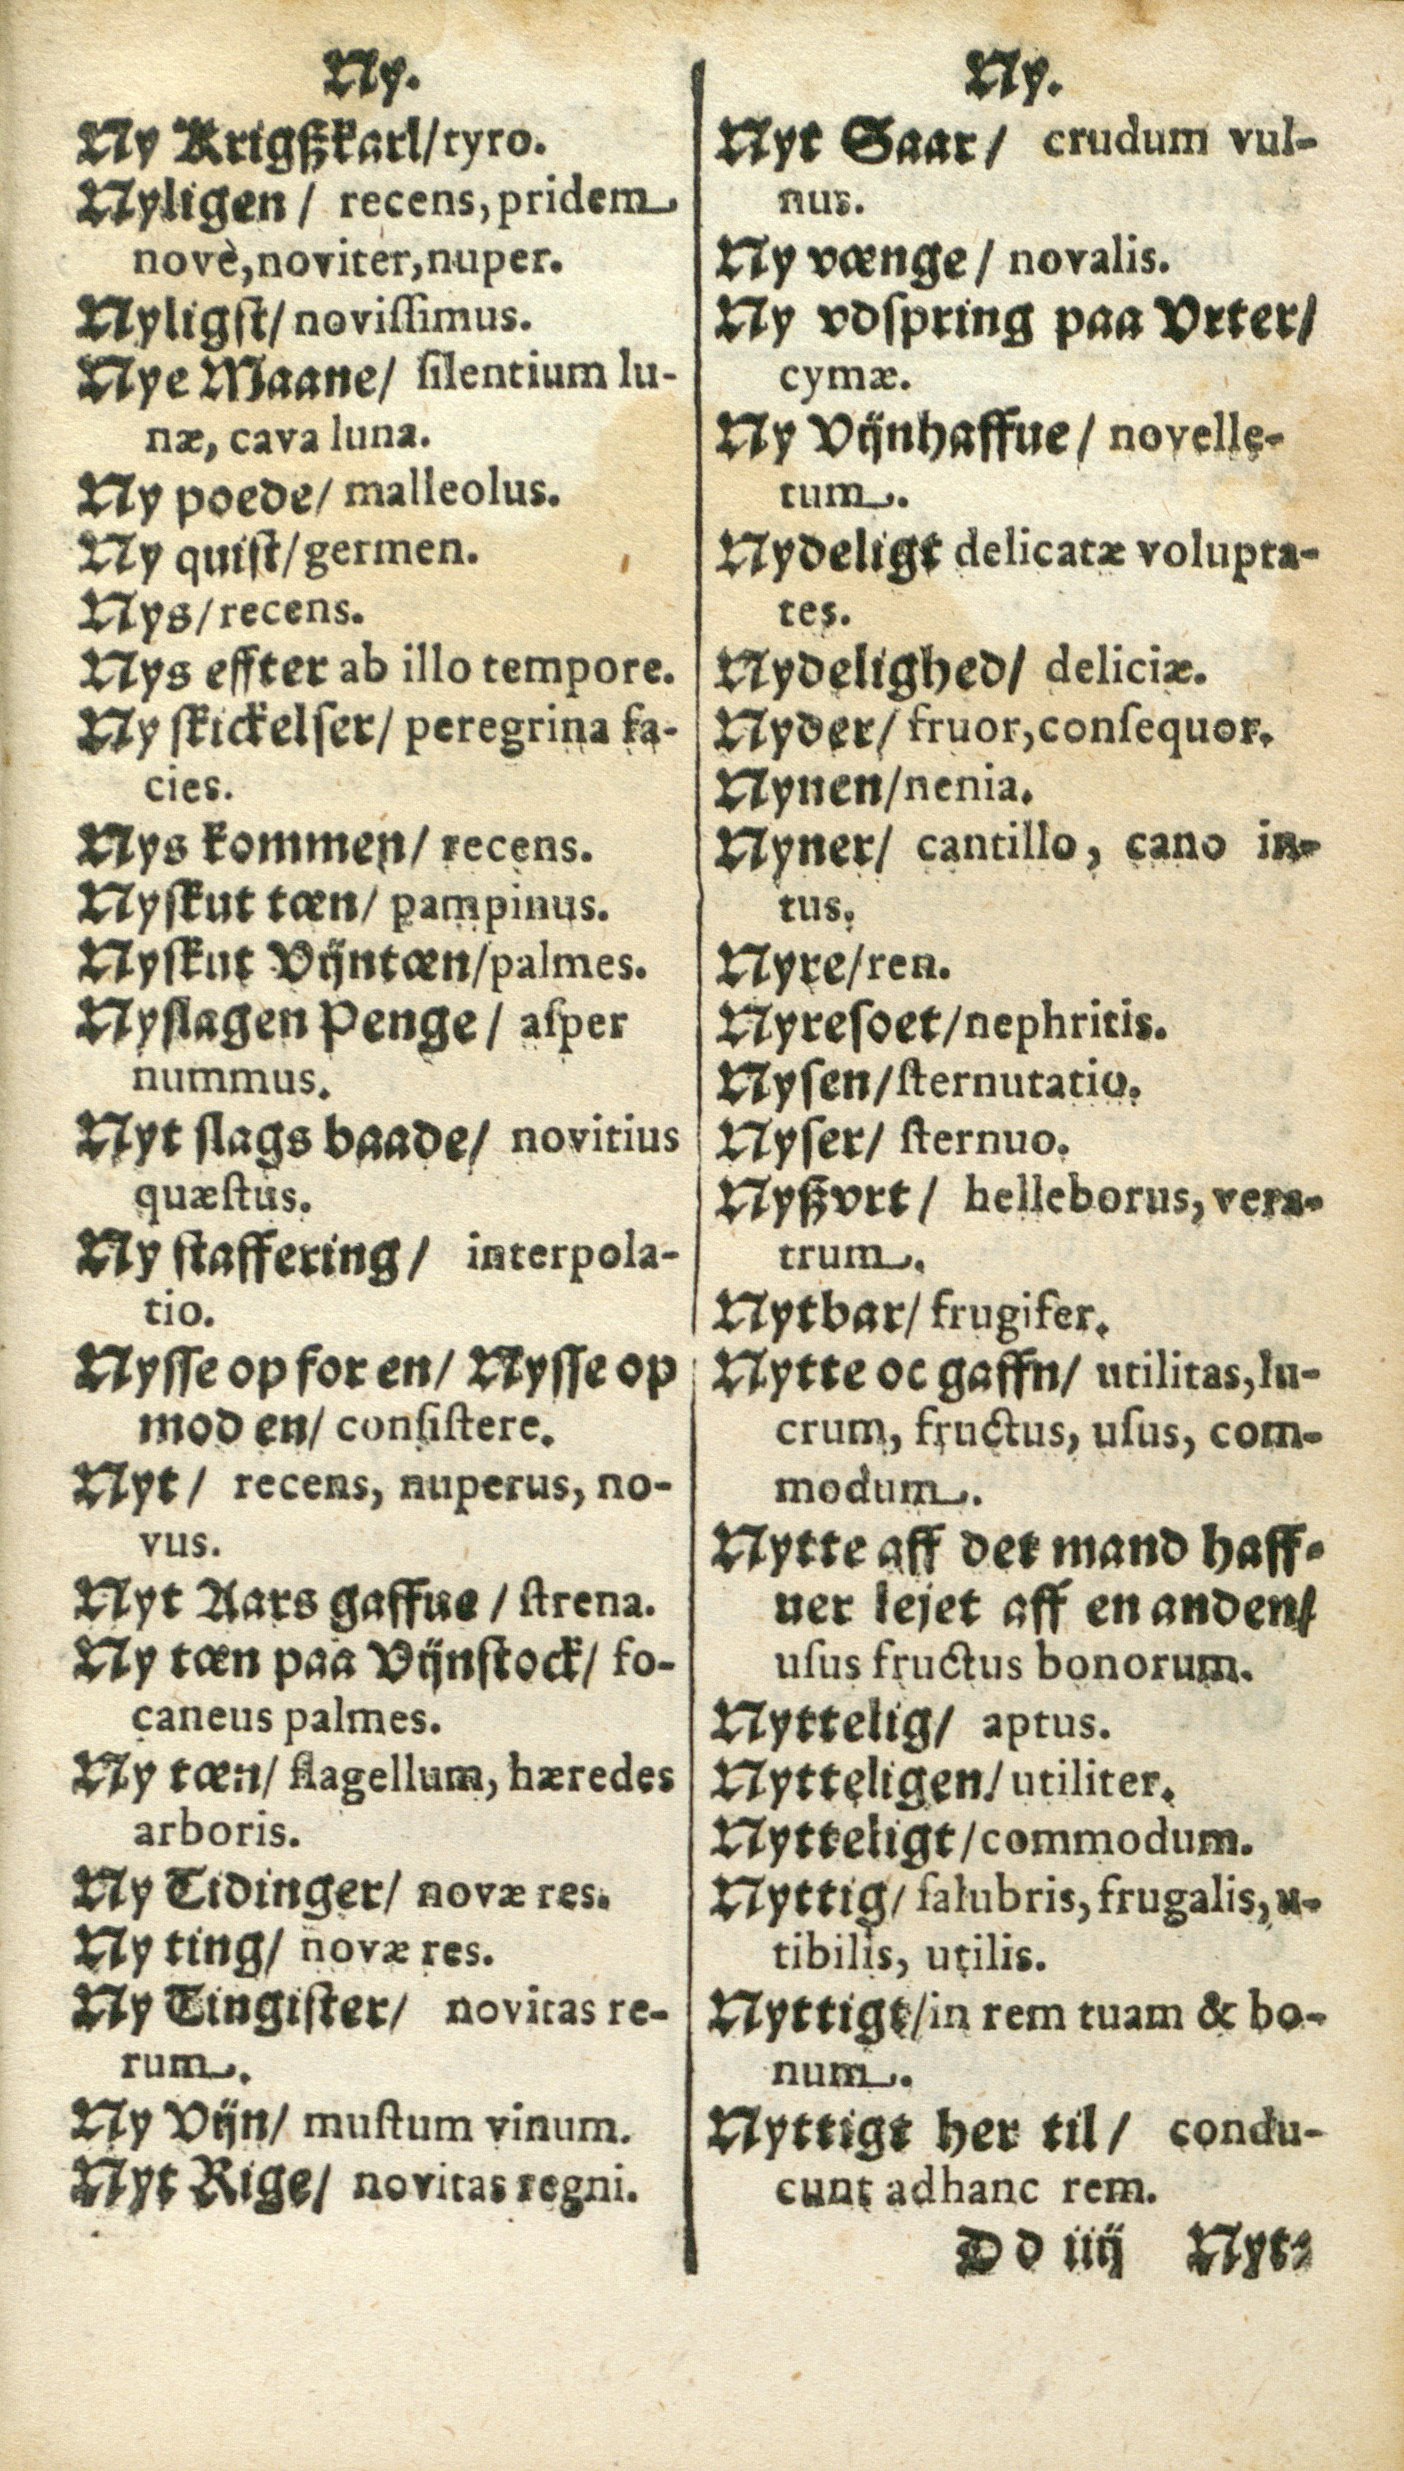 Ny.
Ny Krigßkarl/tyro.
Nyligen / recens, pridem
novè, noviter, nuper.
Nyligſt/ noviſſimus.
Nye Maane/ ſilentium lu-
næ, cava luna.
Ny poede/ malleolus.
Ny quiſt/germen.
Nys/recens.
Nys effter ab illo tempore.
Ny ſkickelſer/ peregrina fa-
cies.
Nys kommen/ recens.
Nyſkut tæn/ pampinus.
Nyſkut Vijntæn/palmes.
Nyſlagen Penge/ aſper
nummus.
Nyt ſlags baade/ novitius
quæſtus.
Ny ſtaffering/ interpola-
tio.
Nyſſe op for en/ Nyſſe op
mod en/ conſiſtere.
Nyt/ recens, nuperus, no-
vus.
Nyt Aars gaffue / ſtrena.
Ny tæn paa Vijnſtock/ fo-
caneus palmes.
Ny tæn/ flagellum, hæredes
arboris.
Ny Tidinger/ novæ res.
Ny ting/ novæ res.
Ny Tingiſter/ novitas re-
rum.
Ny Vijn/ muſtum vinum.
Nyt Rige/ novitas regni.
Ny.
Nyt Saar/ crudum vul-
nus.
Ny vænge/ novalis.
Ny vdſpring paa Vrter/
cymæ.
Ny Vijnhaffue/ novelle-
tum.
Nydeligt delicatæ volupta-
tes.
Nydelighed/ deliciæ.
Nyder/ fruor, conſequor.
Nynen/nenia.
Nyner/ cantillo, cano in-
tus.
Nyre/ren.
Nyreſoet/nephritis.
Nyſen/ſternutatio.
Nyſer/ ſternuo.
Nyßvrt/ helleborus, vera-
trum.
Nytbar/ frugifer.
Nytte oc gaffn/ utilitas, lu-
crum, fructus, uſus, com-
modum.
Nytte aff det mand haff-
uer lejet aff en anden/
uſus fructus bonorum.
Nyttelig/ aptus.
Nytteligen/ utiliter.
Nytteligt/commodum.
Nyttig/ ſalubris, frugalis, u-
tibilis, utilis.
Nyttigt/in rem tuam & bo-
num.
Nyttigt her til/ condu-
cunt adhanc rem.
D d iiij Nyt-